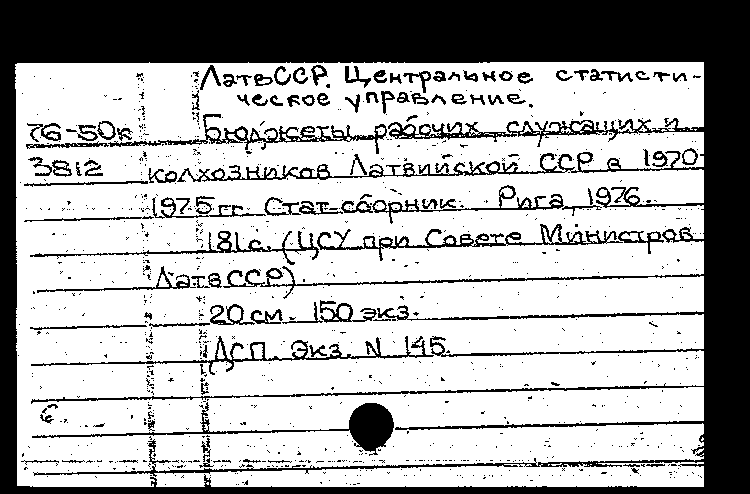 ЛатвССР. Центральное статисти-
ческое управление.
76-50к Бюджеты рабочих, служащих и
3812 колхозников Латвийской ССР в 1970-
1975 гг. Стат. сборник. Рига, 1976.
181 с. (ЦСУ при Совете Министров
ЛатвССР).
20 см. 150 экз.
ДСП. Экз. N 145.